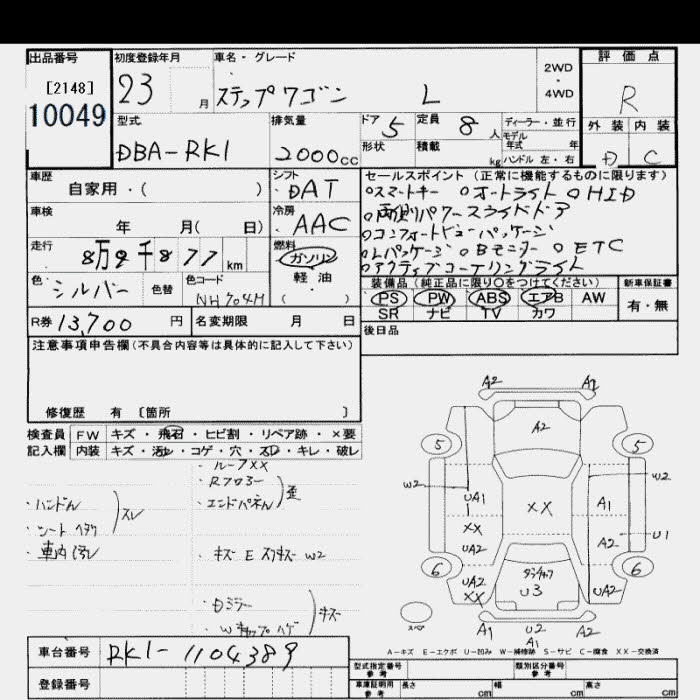 出品番号 初度登録年月 車名・グレード 評価点
[2148]
10049
23 月 ステップワゴン L 2WD・4WD R
型式 排気量 ドア 5 定員 8 人 ディーラー・並行 外装 内装
DBA-RK1 2000cc 形状 積載 kg モデル年式 年 ハンドル 左・右 D C
車歴 自家用・( ) シフト DAT セールスポイント(正常に機能するものに限ります)
車検 年 月( 日) 冷房 AAC
スマートキー オートライト HID
両側パワースライドドア
コンフォートビューパッケージ
Lパッケージ Bモニター ETC
アクティブコーナリングライト
走行 8万2千877km 燃料 ガソリン 軽油 ( )
色 シルバー 色替 色コード NH704M
装備品(純正品に限り○をつけてください) 新車保証書
PS PW ABS エアB AW 有・無
SR ナビ TV カワ
R券 13,700円 名変期限 月 日 後日品
注意事項申告欄(不具合内容等は具体的に記入して下さい)
修復歴 有 [箇所 ]
検査員 FW キズ・飛石・ヒビ割・リペア跡・×要
記入欄 内装 キズ・汚レ・コゲ・穴・スレ・キレ・破レ
・ルーフXX
・エンドパネル 歪
・ハンドル
・シート ヘタリ スレ
・車内汚レ
・キズ E スリキズ W2
・Dミラー
・Wキャップハゲ キズ
A2 A2
A2
5 5
W2 W2
UA1 XX A1
XX
UA2 A2 U1
6 6
UA2 XX U3 UA2
A1 U2 A1
A2
A-キズ E-エクボ U-凹み W-補修跡 S-サビ C-腐食 XX-交換済
車台番号 RK1-1104389
登録番号
型式指定番号 参考 類別区分番号 参考
車庫証明用 参考 長さ cm 幅 cm 高さ cm